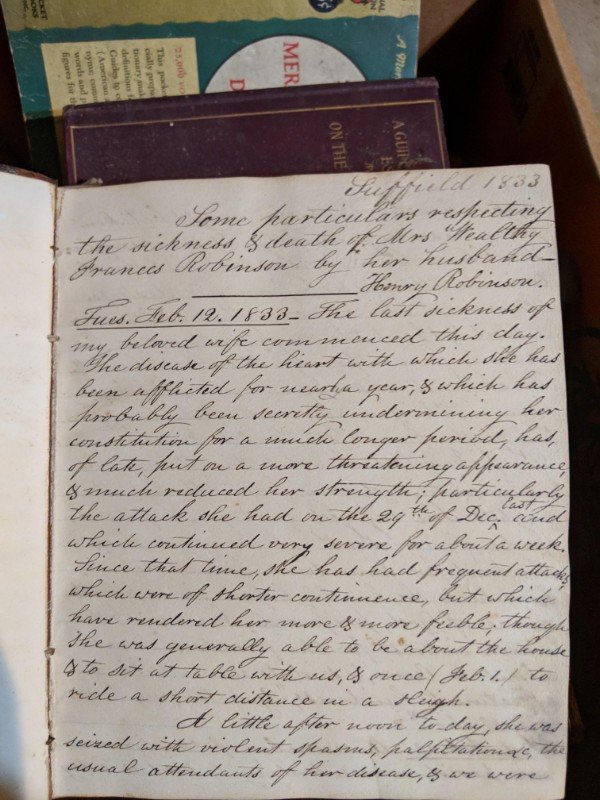 POCKET
BOOKS
A Mer
25,000 VO
This pocke
cially prepa
tionary mak
definitions f
(American a
Guides to co
nyms; comm
words and p
figures for th
MER
D
A GUID
ES
ON THE
Suffield 1833
Some particulars respecting
the sickness & death of Mrs Wealthy
Frances Robinson by her husband—
Henry Robinson.
Tues. Feb. 12. 1833— The last sickness of
my beloved wife commenced this day.
The disease of the heart with which she has
been afflicted for near a year, & which has
probably been secretly undermining her
constitution for a much longer period, has,
of late, put on a more threatening appearance,
& much reduced her strength; particularly
the attack she had on the 29th of Dec. last and
which continued very severe for about a week.
Since that time, she has had frequent attacks,
which were of shorter continuence, but which
have rendered her more & more feeble; though
she was generally able to be about the house
& to sit at table with us, & once (Feb. 1.) to
ride a short distance in a sleigh.
A little after noon to day, she was
seized with violent spasms, palpitation &c, the
usual attendants of her disease, & we were